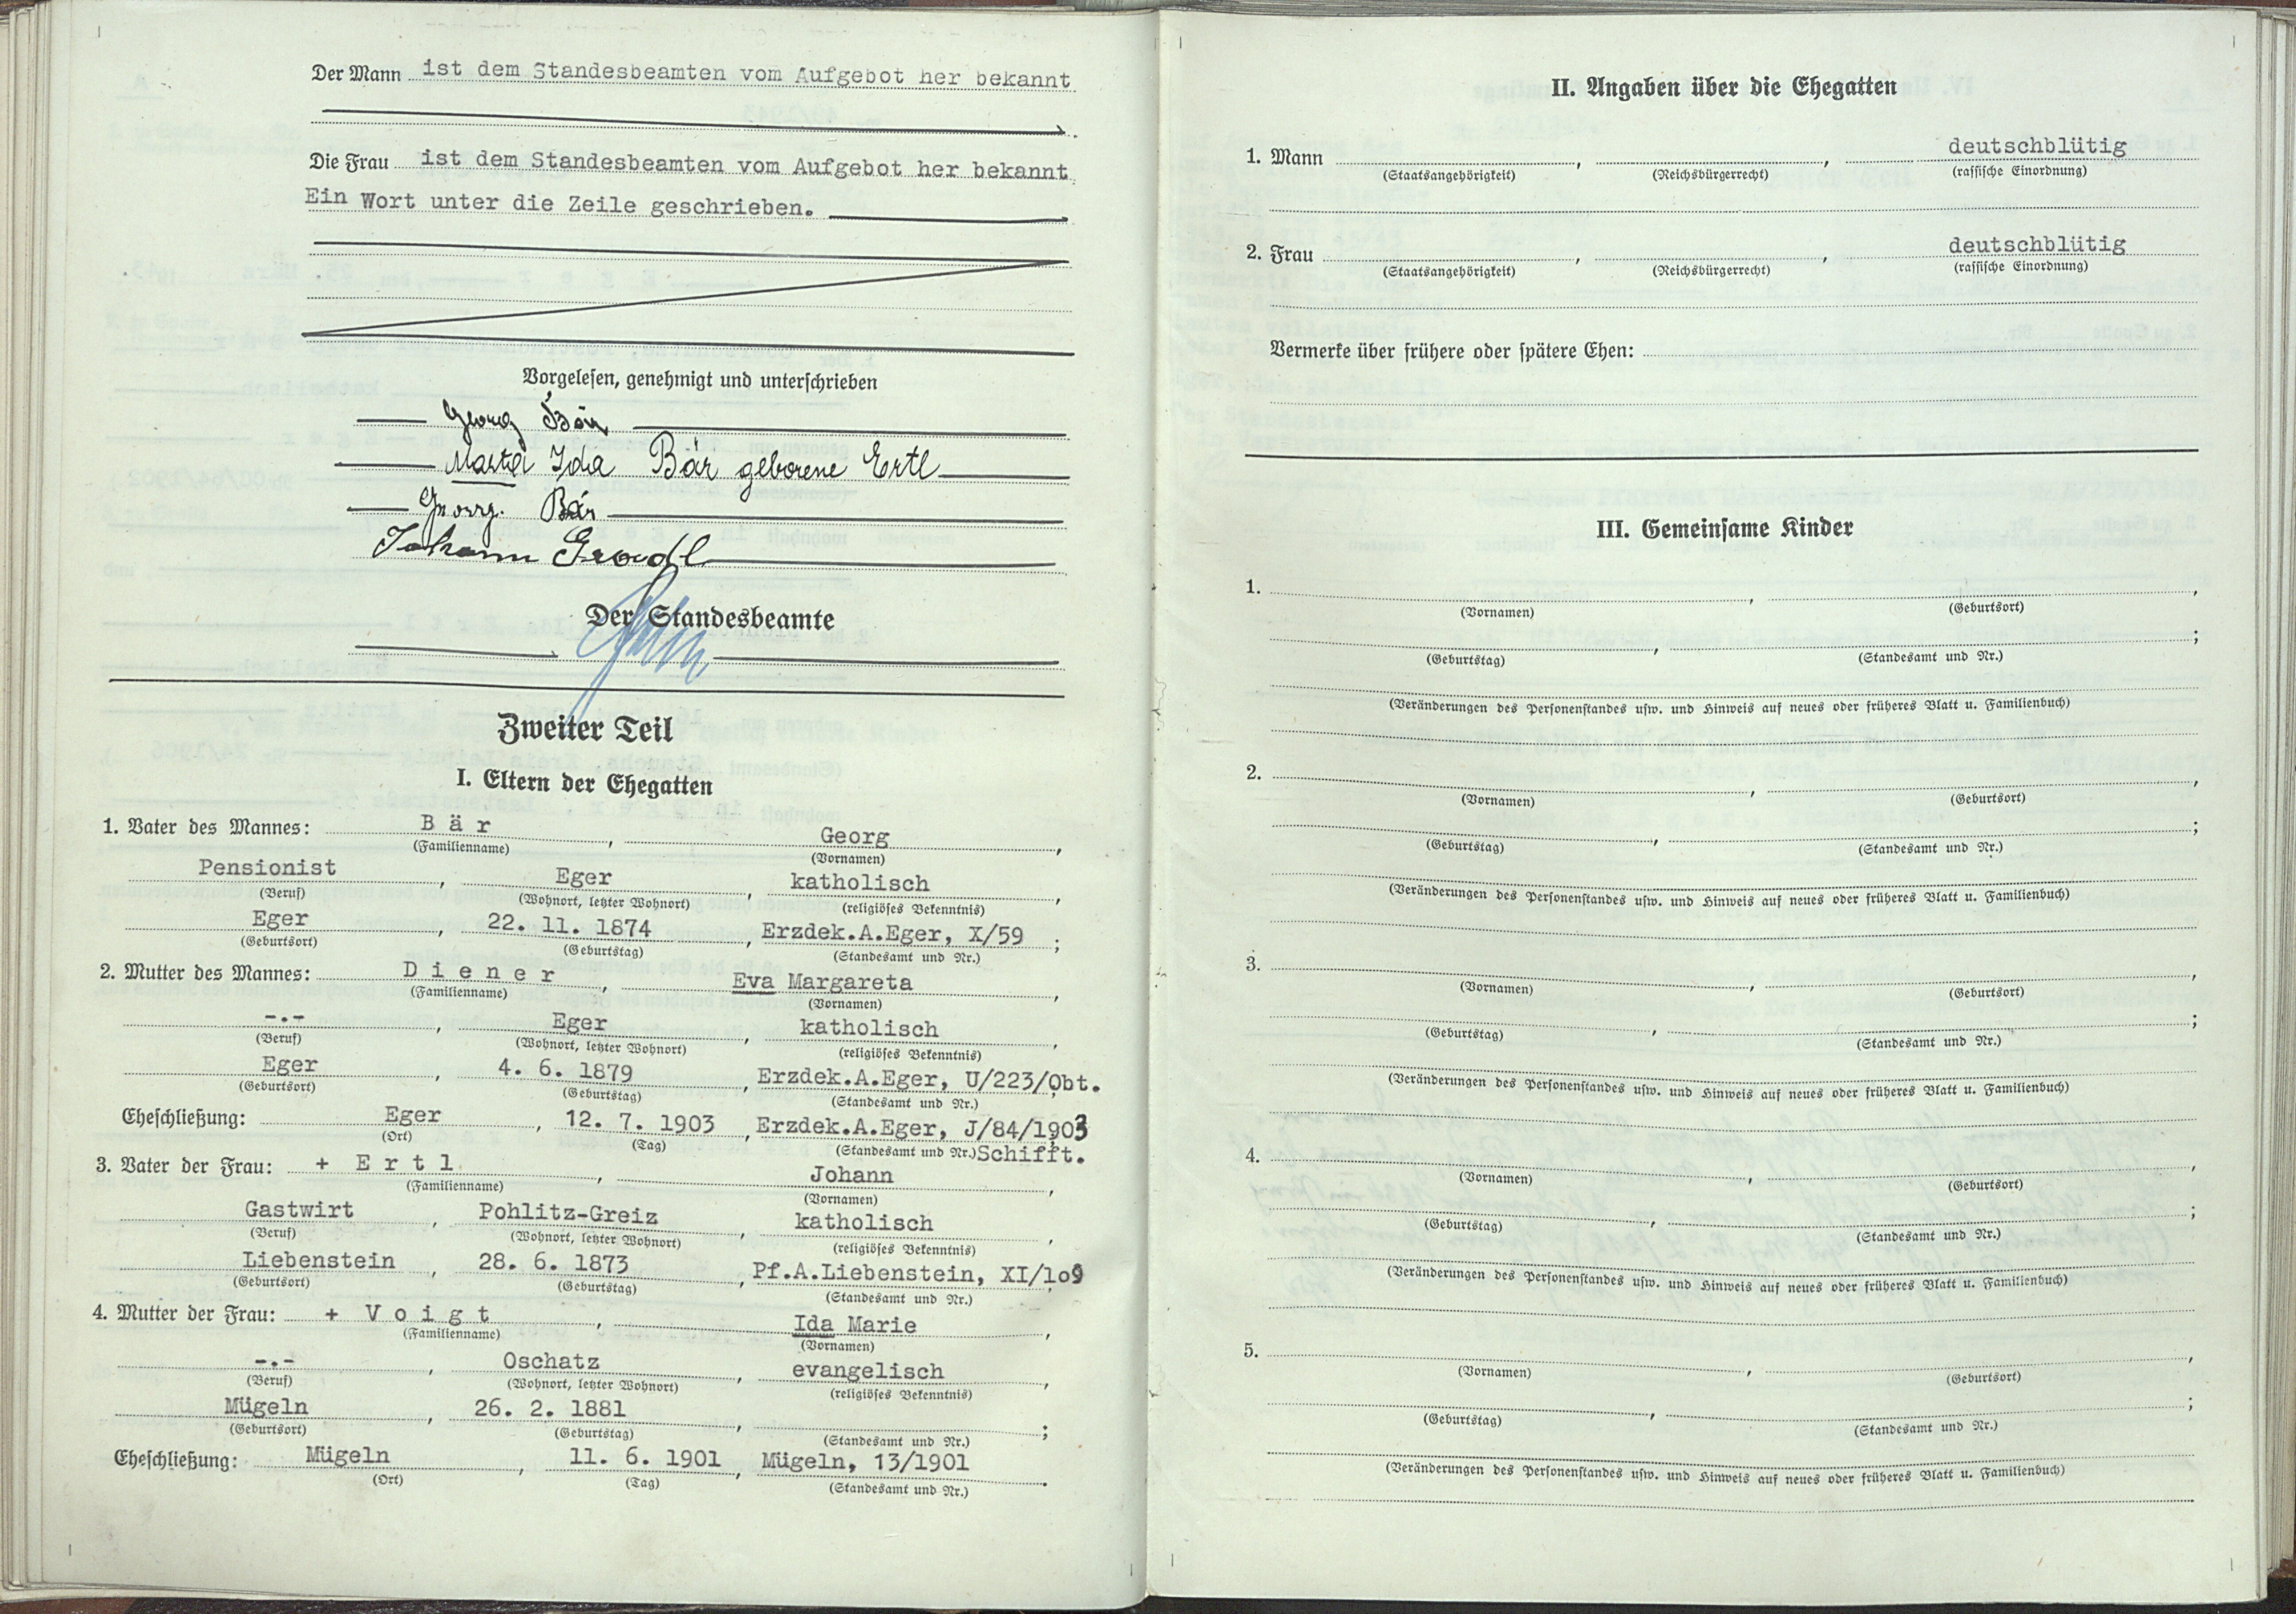 Der Mann ist dem Standesbeamten vom Aufgebot her bekannt
Die Frau ist dem Standesbeamten vom Aufgebot her bekannt
Ein Wort unter die Zeile geschrieben.
Vorgelesen, genehmigt und unterschrieben
Georg Bär
Marta Ida Bär geborene Ertl
Georg. Bär
Johann
Der Standesbeamte
Zweiter Teil
I. Eltern der Ehegatten
1. Vater des Mannes: Bär, Georg,
(Familienname) (Vornamen)
Pensionist, Eger, katholisch,
(Beruf) (Wohnort, letzter Wohnort) (religiöses Bekenntnis)
Eger, 22. 11. 1874, Erzdek.A.Eger, X/59;
(Geburtsort) (Geburtstag) (Standesamt und Nr.)
2. Mutter des Mannes: Diener, Eva Margareta,
(Familienname) (Vornamen)
-.-, Eger, katholisch,
(Beruf) (Wohnort, letzter Wohnort) (religiöses Bekenntnis)
Eger, 4. 6. 1879, Erzdek.A.Eger, U/223/Obt.
(Geburtsort) (Geburtstag) (Standesamt und Nr.)
Eheschließung: Eger, 12. 7. 1903, Erzdek.A.Eger, J/84/1903
(Ort) (Tag) (Standesamt und Nr.) Schifft.
3. Vater der Frau: + Ertl, Johann,
(Familienname) (Vornamen)
Gastwirt, Pohlitz-Greiz, katholisch,
(Beruf) (Wohnort, letzter Wohnort) (religiöses Bekenntnis)
Liebenstein, 28. 6. 1873, Pf.A.Liebenstein, XI/109
(Geburtsort) (Geburtstag) (Standesamt und Nr.)
4. Mutter der Frau: + Voigt, Ida Marie,
(Familienname) (Vornamen)
-.-, Oschatz, evangelisch,
(Beruf) (Wohnort, letzter Wohnort) (religiöses Bekenntnis)
Mügeln, 26. 2. 1881, ;
(Geburtsort) (Geburtstag) (Standesamt und Nr.)
Eheschließung: Mügeln, 11. 6. 1901, Mügeln, 13/1901.
(Ort) (Tag) (Standesamt und Nr.)
II. Angaben über die Ehegatten
1. Mann , , deutschblütig
(Staatsangehörigkeit) (Reichsbürgerrecht) (rassische Einordnung)
2. Frau , , deutschblütig
(Staatsangehörigkeit) (Reichsbürgerrecht) (rassische Einordnung)
Vermerke über frühere oder spätere Ehen:
III. Gemeinsame Kinder
1. , ,
(Vornamen) (Geburtsort)
, ;
(Geburtstag) (Standesamt und Nr.)
(Veränderungen des Personenstandes usw. und Hinweis auf neues oder früheres Blatt u. Familienbuch)
2. , ,
(Vornamen) (Geburtsort)
, ;
(Geburtstag) (Standesamt und Nr.)
(Veränderungen des Personenstandes usw. und Hinweis auf neues oder früheres Blatt u. Familienbuch)
3. , ,
(Vornamen) (Geburtsort)
, ;
(Geburtstag) (Standesamt und Nr.)
(Veränderungen des Personenstandes usw. und Hinweis auf neues oder früheres Blatt u. Familienbuch)
4. , ,
(Vornamen) (Geburtsort)
, ;
(Geburtstag) (Standesamt und Nr.)
(Veränderungen des Personenstandes usw. und Hinweis auf neues oder früheres Blatt u. Familienbuch)
5. , ,
(Vornamen) (Geburtsort)
, ;
(Geburtstag) (Standesamt und Nr.)
(Veränderungen des Personenstandes usw. und Hinweis auf neues oder früheres Blatt u. Familienbuch)